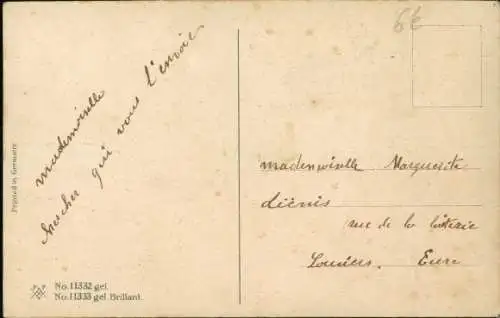 mademoiselle
chercher qui vous l'envoie
Printed in Germany
No. 11332 gel.
No. 11333 gel. Brillant.
6€
mademoiselle Marguerite
diénis
rue de la
Louviers. Eure